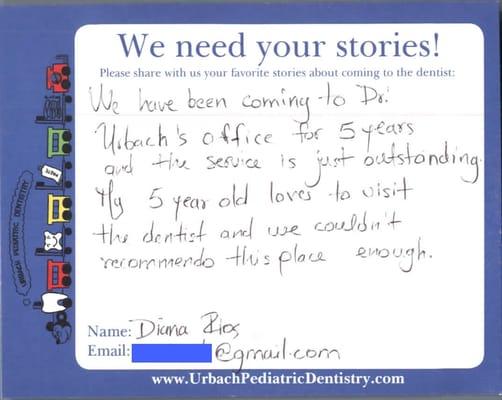 We need your stories!
Please share with us your favorite stories about coming to the dentist:
We have been coming to Dr.
Urbach's office for 5 years
and the service is just outstanding.
My 5 year old loves to visit
the dentist and we couldn't
recommendo this place enough.
Name: Diana Rios
Email: @gmail.com
www.UrbachPediatricDentistry.com
URBACH PEDIATRIC DENTISTRY